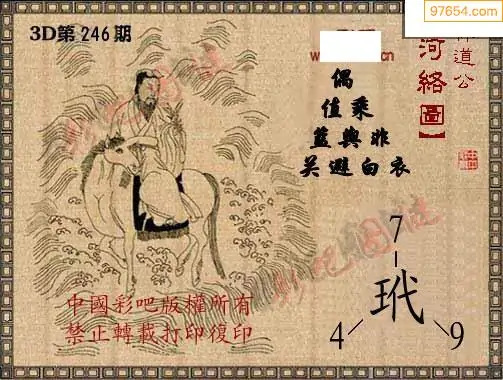 97654.com
3D第246期
w
.cn
道公
河絡圖】
偶
值乘
藍輿非
关避白衣
7
玳
4 9
中國彩吧版權所有
禁止轉載打印復印